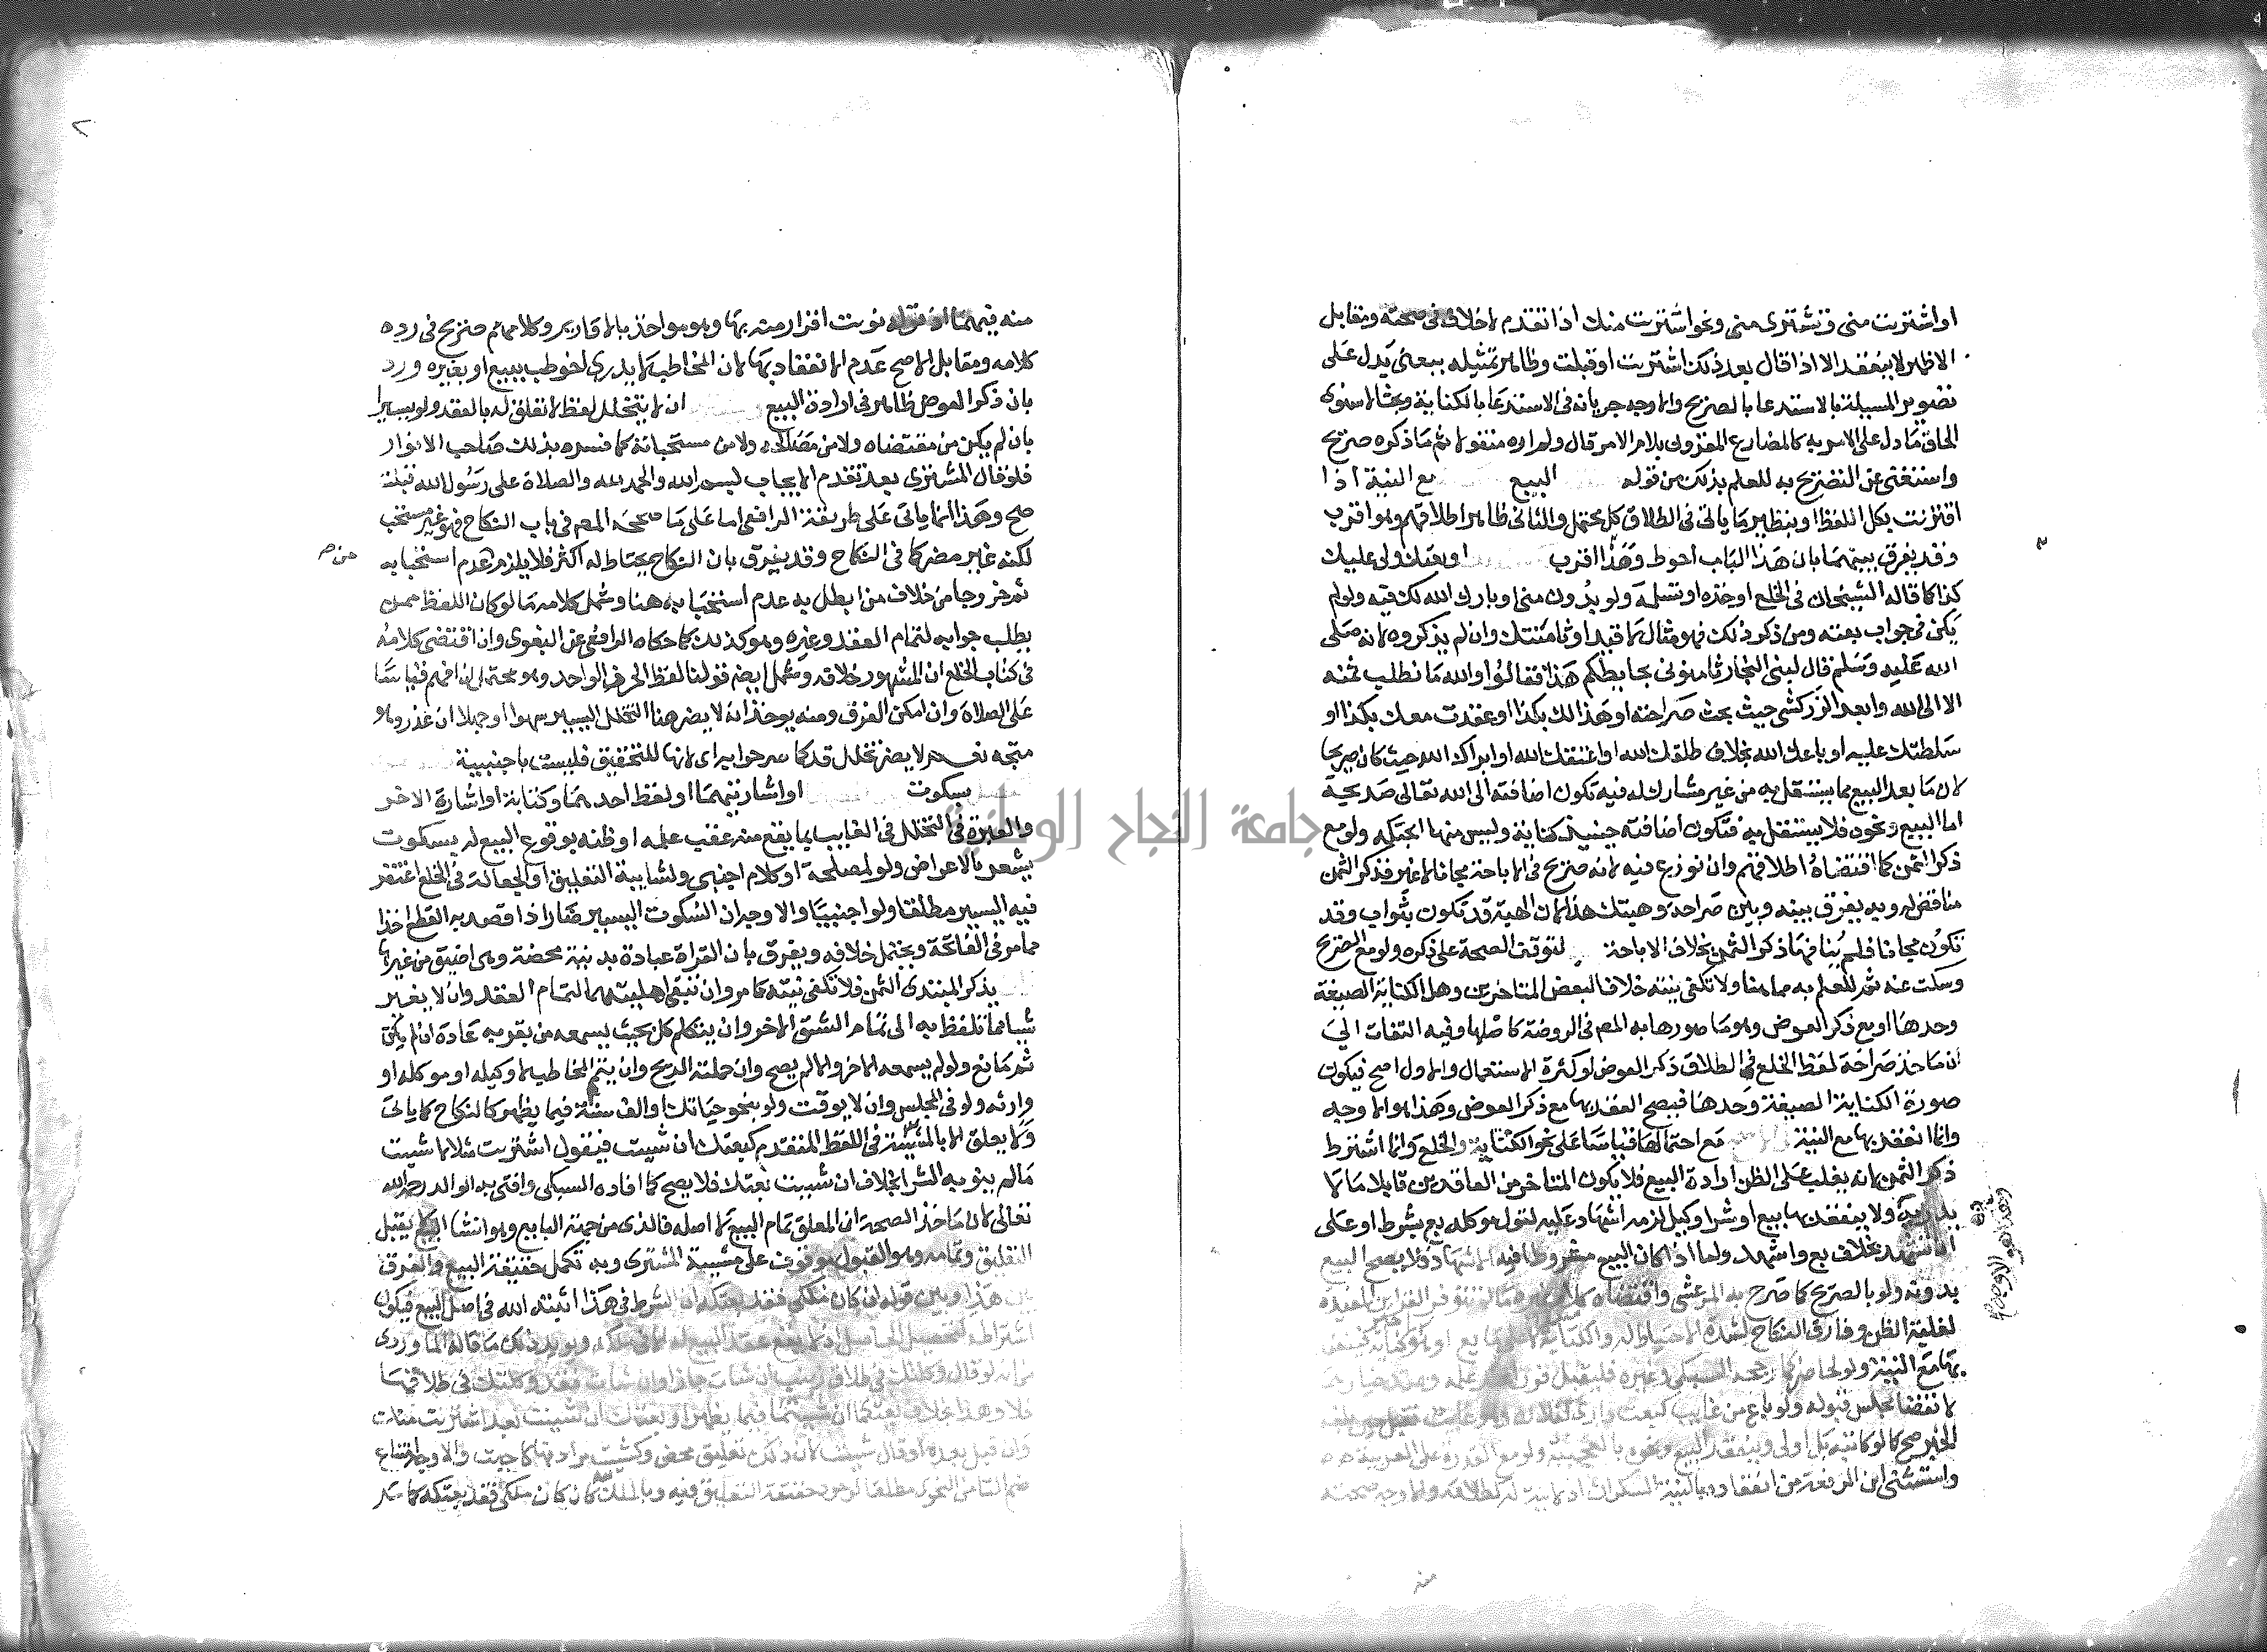 او اشتريت مني وتشتري مني ونحو اشتريت منك اذا تقدم لا خلاف في صحته ومقابل
الاظهر لا ينعقد الا اذا قال بعد ذلك اشتريت او قبلت وظاهر تمثيله ببعني يدل على
تصوير المسيلة بالاستدعا بالصريح والاوجه جريانه في الاستدعا بالكناية وبحث الاسنوي
الحاق ما دل على الامر به كالمضارع المقرون بلام الامر قال ولم اره منقولا ثم ما ذكره صريح
واستغنى عن التصريح به للعلم بذلك من قوله البيع مع النية اذا
اقترنت بكل اللفظ او بنظير ما ياتي في الطلاق كل محتمل والثاني ظاهر اطلاقهم وهو اقرب
وقد يفرق بينهما بان هذا الباب احوط وهذا اقرب او بعتك ولي عليك
كذا كما قاله الشيخان في الخلع او خذه او تسلمه ولو بدون مني او بارك الله لك فيه ولو لم
يكن في جواب بعته ومن ذكر ذلك فهو مثال لا قيد او ثامنتك وان لم يذكروه لانه صلى
الله عليه وسلم قال لبني النجار ثامنوني بحايطكم هذا فقالوا والله ما نطلب ثمنه
الا الى الله وابعد الزركشي حيث بحث صراحته او هذا لك بكذا او عقدت معك بكذا او
سلطتك عليه او باعك الله بخلاف طلقك الله او اعتقك الله او ابراك الله حيث كان صريحا
لان ما بعد البيع مما يستقل به من غير مشارك له فيه تكون اضافته الى الله تعالى صريحة
اما البيع ونحوه فلا يستقل به فتكون اضافته حينيذ كناية وليس منها ابحتكه ولو مع
ذكر الثمن كما اقتضاه اطلاقهم وان نوزع فيه لانه صريح في الاباحة مجانا لا غير فذكر الثمن
مناقض له وبه يفرق بينه وبين صراحة وهبتك هذا لان الهبة قد تكون بثواب وقد
تكون مجانا فلم ينافها ذكر الثمن بخلاف الاباحة لتوقت الصحة على ذكره ولو مع الصريح
وسكت عنه ثم للعلم به مما هنا ولا تكفي نيته خلافا لبعض المتاخرين وهل الكناية الصيغة
وحدها او مع ذكر العوض وهو ما صورها به المص في الروضة كاصلها وفيه التفات الى
ان ماخذ صراحة لفظ الخلع في الطلاق ذكر العوض او كثرة الاستعمال والاول اصح فيكون
صورة الكناية الصيغة وحدها فيصح العقد بها مع ذكر العوض وهذا هو الاوجه
وانما انعقد بها مع النية مع احتمالها قياسا على نحو الكتابة والخلع وانما اشترط
ذكر الثمن لانه يغلب على الظن ارادة البيع فلا يكون المتاخر من العاقدين قابلا ما لا
يدريه ولا ينعقد بها بيع او شرا وكيل لزمه اشهاد عليه لقول موكله بع بشرط او على
ان تشهد بخلاف بع واشهد ولما اذا كان البيع مشروطا فيه الاشهاد ولا يصح البيع
بدونه ولو بالصريح كما صرح به المرعشي واقتضاه كلام غيره ما لم تتوفر القراين المفيدة
لغلبة الظن وفارق النكاح لشدة الاحتياط له والكتابة
بها مع النية ولو لحاضر كما رجحه السبكي وغيره فليقبل فورا عند علمه
لانقضا مجلس قبوله ولو باع من غايب كبعت داري لفلان وهو غايب فقبل حين بلغه
الخبر صح كما لو كاتبه بل اولى وينعقد البيع ونحوه بالعجمية ولو مع القدرة على العربية
واستثنى ابن الرفعة من انعقاده بالنية السكران اذ لا نية له لاطلاقه والاوجه صحته
منه
منه فيهما اذ قوله نويت اقرار منه بها وهو مواخذ بالاقارير وكلامهم صريح في رده
كلامه ومقابل الاصح عدم الانعقاد بها لان المخاطب لا يدري اخوطب ببيع او بغيره ورد
بان ذكر العوض ظاهر في ارادة البيع ان لا يتخلل لفظ لا تعلق له بالعقد ولو يسيرا
بان لم يكن من مقتضاه ولا من مصالحه ولا من مستحباته كما فسره بذلك صاحب الانوار
فلو قال المشتري بعد تقدم الايجاب بسم الله والحمد لله والصلاة على رسول الله قبلت
صح وهذا انما ياتي على طريقة الرافعي اما على ما صححه المص في باب النكاح فهو غير مستحب
لكنه غير مضر كما في النكاح وقد يفرق بان النكاح يحتاط له اكثر فلا يلزم من عدم استحبابه
ثم خروجا من خلاف من ابطل به عدم استحبابه هنا وشمل كلامه ما لو كان اللفظ ممن
يطلب جوابه لتمام العقد وغيره وهو كذلك كما حكاه الرافعي عن البغوي وان اقتضى كلامه
في كتاب الخلع ان المشهور خلافه وشمل ايضه قولنا لفظ الحرف الواحد وهو محتمل ان افهم قياسا
على الصلاة وان امكن الفرق ومنه يوخذ انه لا يضر هنا التخلل اليسير سهوا او جهلا ان عذر وهو
متجه نعم لا يضر تخلل قد كما صرح ابه راى لانها للتحقيق فليست باجنبية
بسكوت او اشارتهما او لفظ احدهما وكتابة او اشارة الاخر
والعبرة في التخلل في الغايب بما يقع منه عقب علمه او ظنه بوقوع البيع له بسكوت
يشعر بالاعراض ولو لمصلحة او كلام اجنبي ولشايبة التعليق او الجعالة في الخلع اغتفر
فيه اليسير مطلقا ولو اجنبيا والاوجه ان السكوت اليسير ضار اذا قصد به القطع اخذا
مما مر في الفاتحة ويحتمل خلافه ويفرق بان القراة عبادة بدنية محضة وهي اضيق من غيرها
يذكر المبتدي الثمن فلا تكفي نيته كما مر وان تبقى اهليتهما لتمام العقد وان لا يغير
شيا مما تلفظ به الى تمام الشق الاخر وان يتكلم كل بحيث يسمعه من بقربه عادة ان لم يكن
ثم مانع ولو لم يسمعه الاخر والا لم يصح وان حملته الريح وان يتم المخاطب لا وكيله او موكله او
وارثه ولو في المجلس وان لا يوقت ولو بنحو حياتك او الف سنة فيما يظهر كالنكاح كما ياتي
ولا يعلق الا بالمشية في اللفظ المتقدم كبعتك ان شيت فيقول اشتريت مثلا لا شيت
ما لم ينو به الشرا بخلاف ان شيت بعتك فلا يصح كما افاده السبكي وافتى به الوالد رحمه الله
تعالى لان ماخذ الصحة ان المعلق تمام البيع لا اصله فالذي من جهة البايع وهو انشا البيع لا يقبل
التعليق وتمامه وهو القبول موقوف على مشية المشتري وبه تكمل حقيقة البيع والفرق
بين هذا وبين قوله ان كان ملكي فقد بعتكه ان الشرط في هذا اثبته الله في اصل البيع فيكون
اشتراطه لتحصيل الحاصل اذ لا يقع عقد البيع له الا في ملكه ويويد ذلك ما قاله الماوردي
من انه لو قال وكلتك في طلاق زينب ان شات جاز او ان شات فقد وكلتك في طلاقها
فلا وهذا بخلاف بعتكما ان شيتما فيما يظهر او بعتك ان شيت بعد اشتريت منك
وان قبل بعده او قال شيت لان ذلك تعليق محض وكشيت مرادفها كاحببت والاوجه امتناع
ضم التا من النحوي مطلقا لوجود حقيقة التعليق فيه وبالملك كان كان ملكي فقد بعتكه كما مر